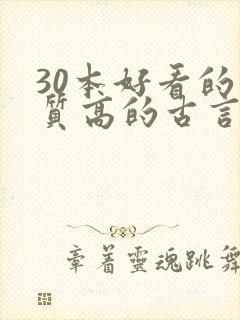 30本好看的
質高的古言
章着靈魂跳舞